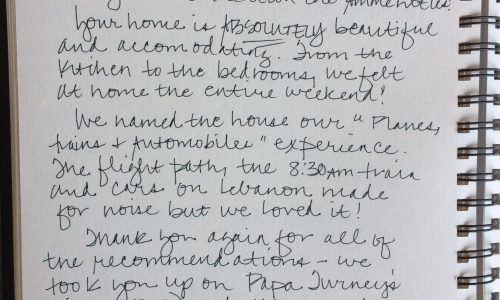 the ammenities.
Your home is ABSOLUTELY beautiful
and accomodating. From the
kitchen to the bedrooms, we felt
at home the entire weekend!
We named the house our "Planes,
trains + Automobiles" experience.
The flight path, the 8:30am train
and cars on Lebanon made
for noise but we loved it!
Thank you again for all of
the recommendations - we
took you up on Papa Turney's